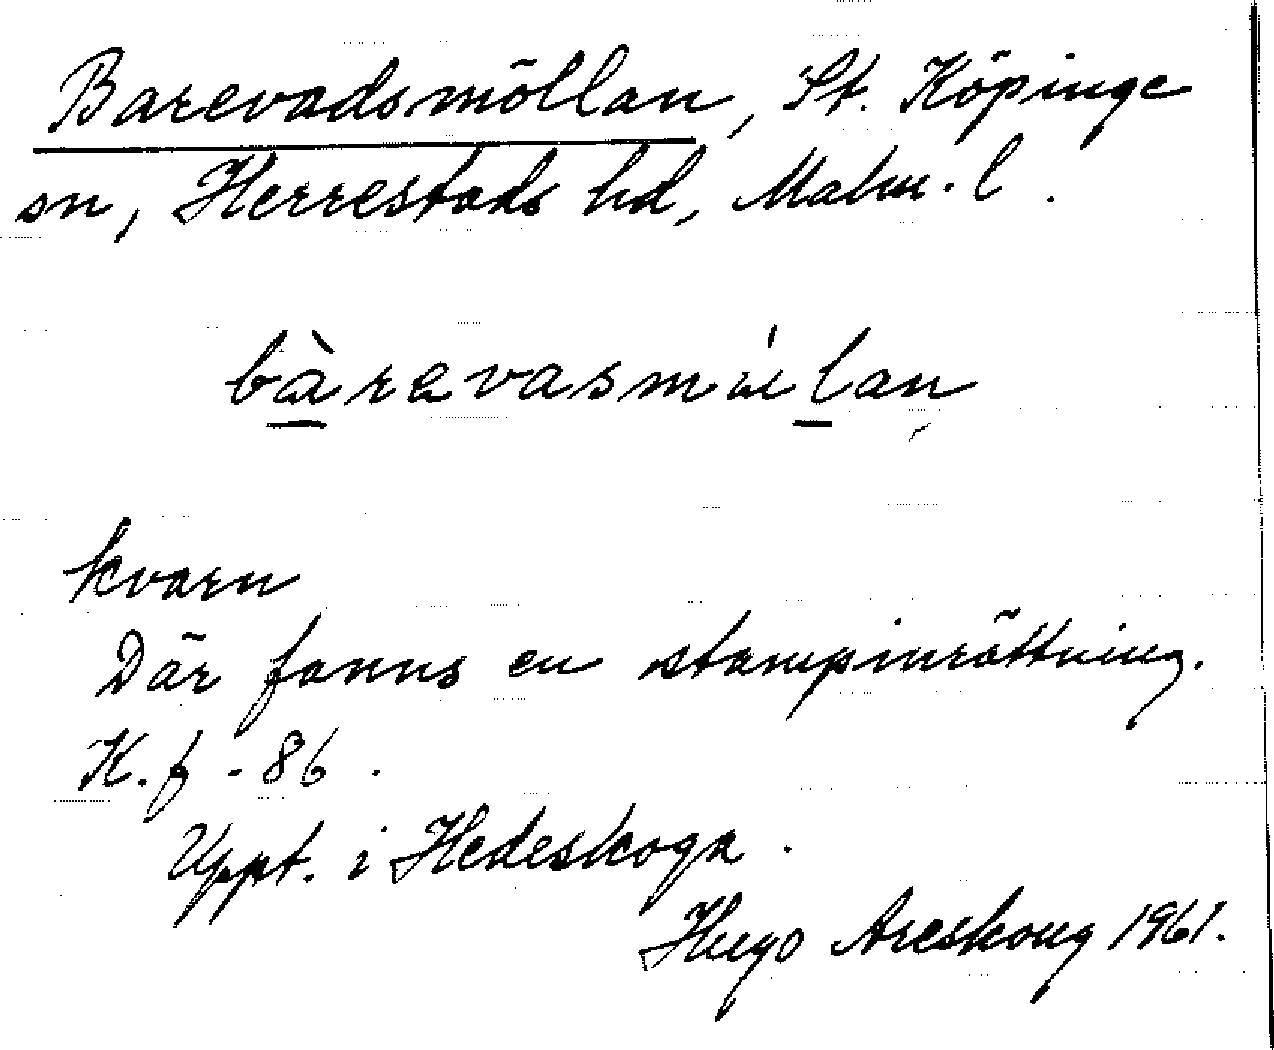 Barevadsmöllan, St. Köpinge
sn, Herrestads hd, Malm. l.
bàravasmílan
kvarn
Där fanns en stampinrättning.
K. f - 86.
Uppt. i Hedeskoga.
Hugo Areskoug 1961.